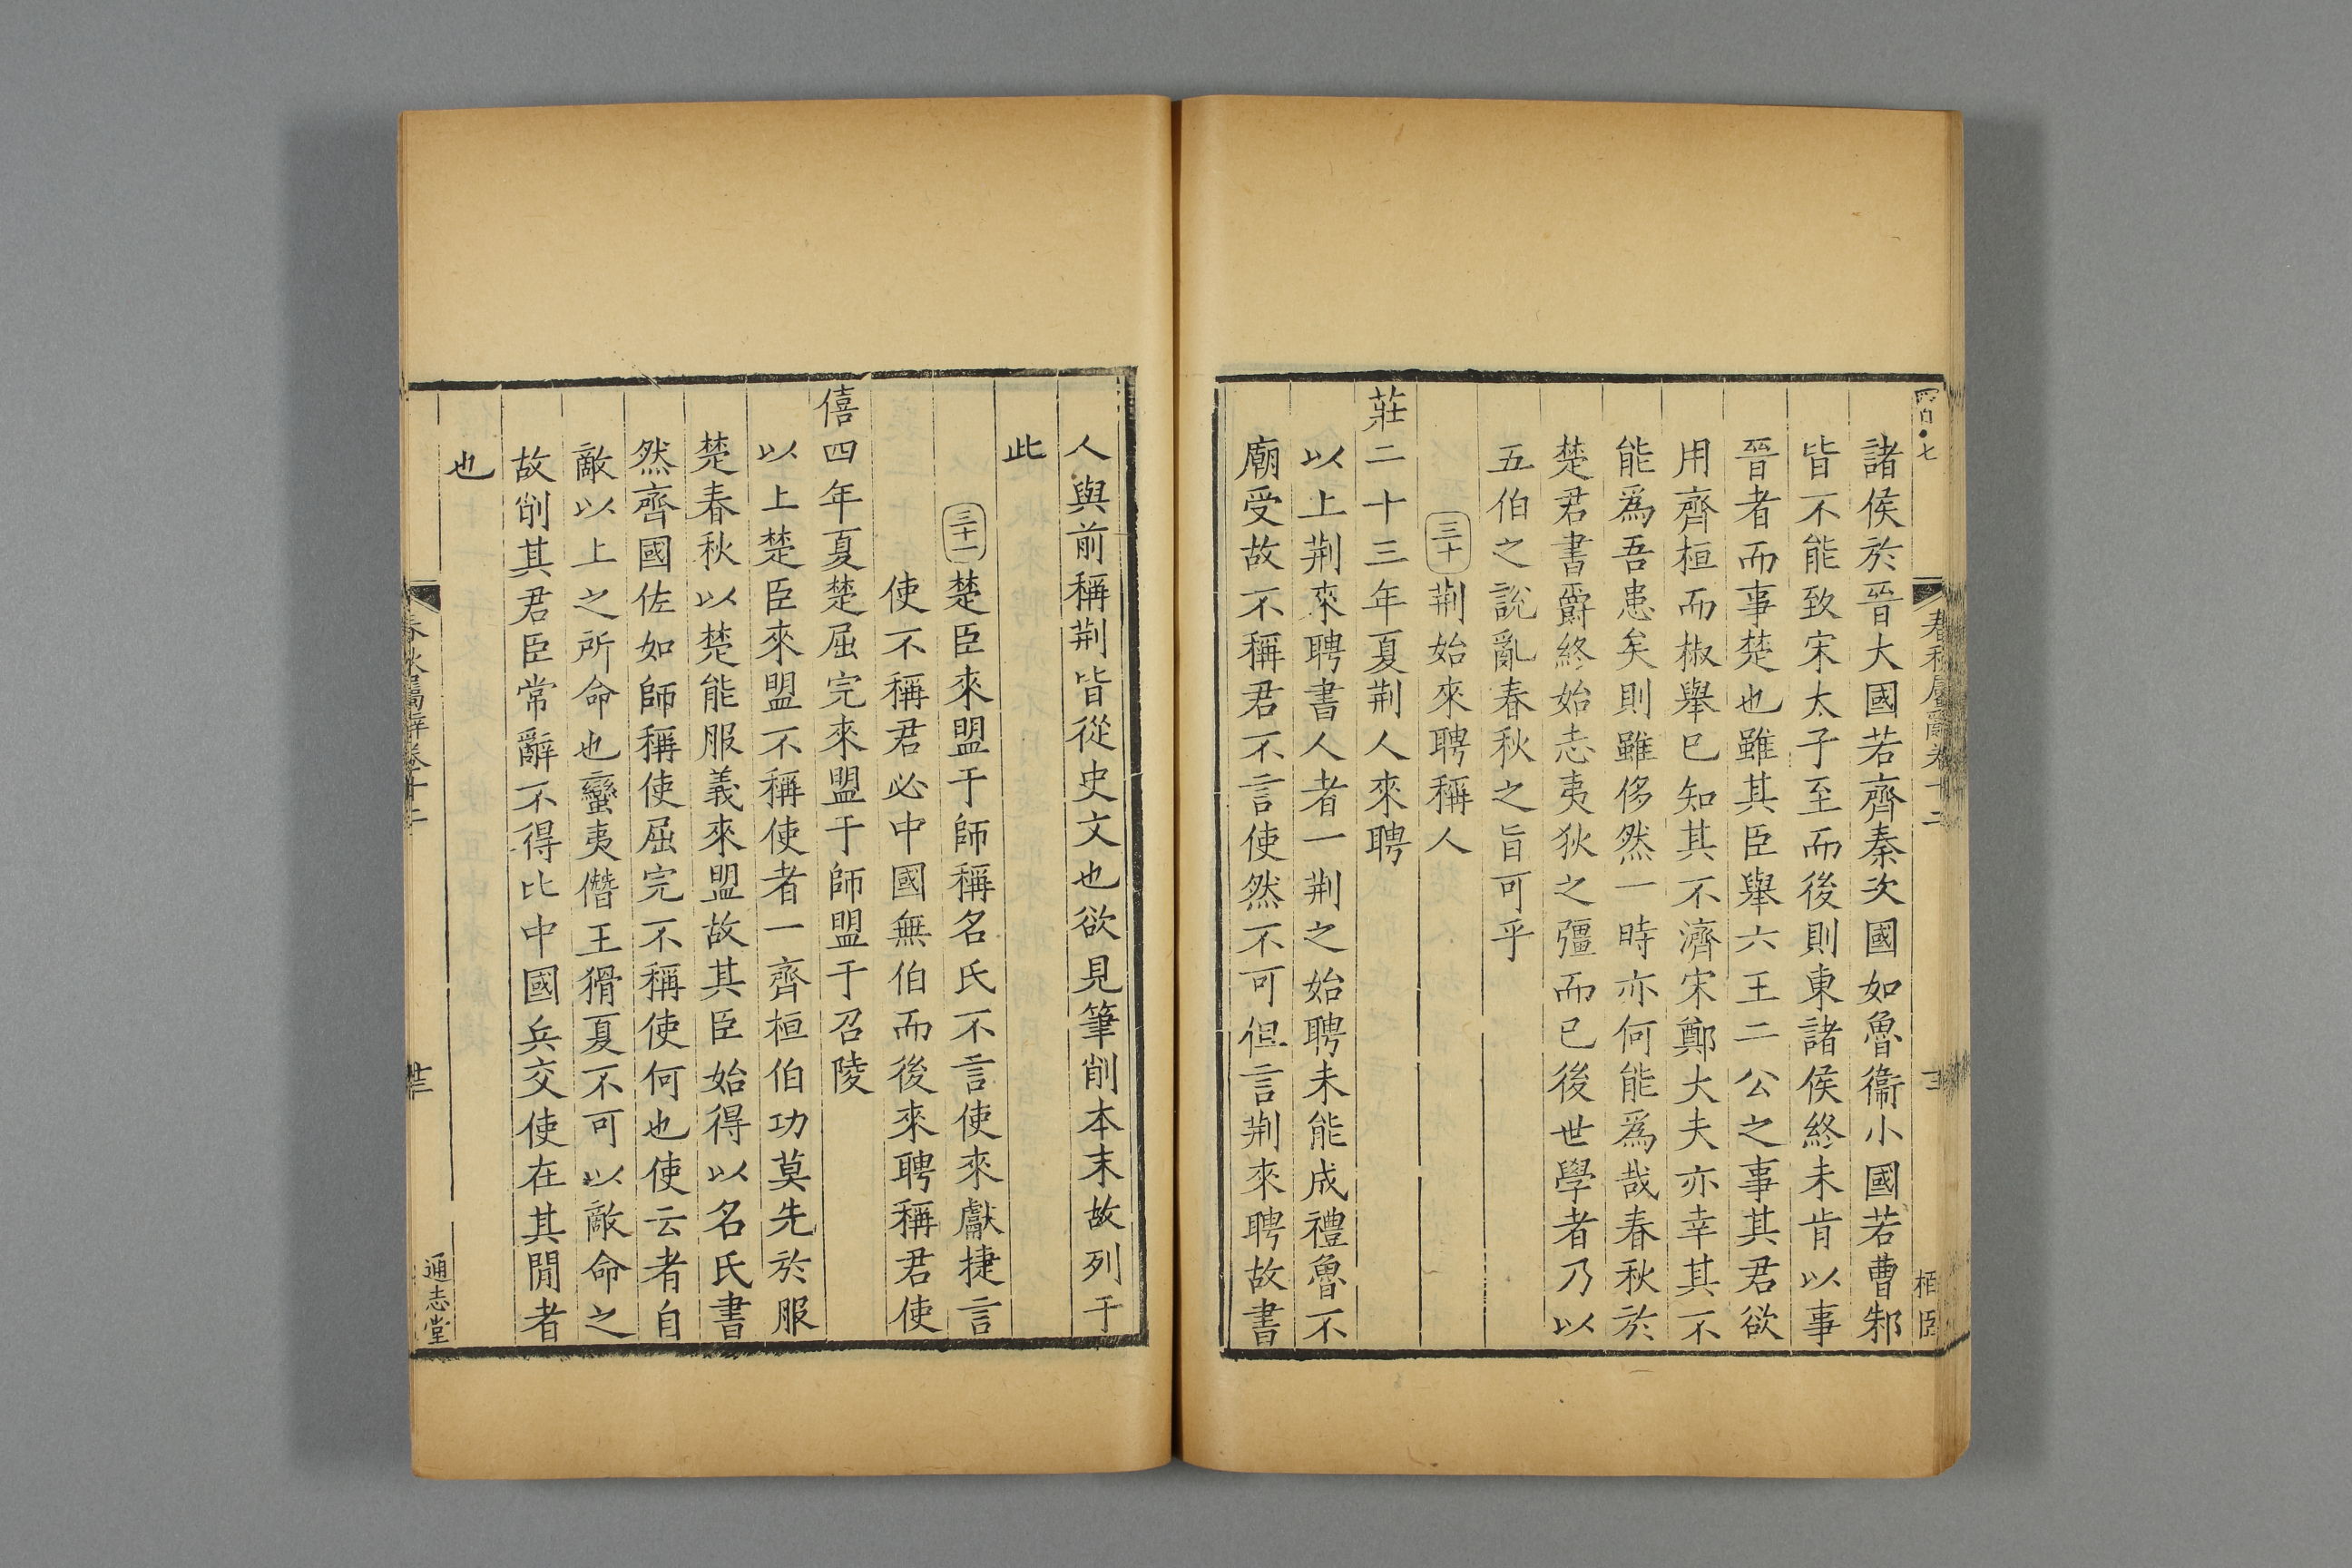 春秋屬辭卷十二
諸侯於晉大國若齊秦次國如魯衞小國若曹邾
皆不能致宋太子至而後則東諸侯終未肯以事
晉者而事楚也雖其臣舉六王二公之事其君欲
用齊桓而椒舉已知其不濟宋鄭大夫亦幸其不
能爲吾患矣則雖侈然一時亦何能爲哉春秋於
楚君書爵終始志夷狄之彊而已後世學者乃以
五伯之說亂春秋之旨可乎
三十荆始來聘稱人
莊二十三年夏荆人來聘
以上荆來聘書人者一荆之始聘未能成禮魯不
廟受故不稱君不言使然不可但言荆來聘故書
人與前稱荆皆從史文也欲見筆削本末故列于
此
三十一楚臣來盟于師稱名氏不言使來獻捷言
使不稱君必中國無伯而後來聘稱君使
僖四年夏楚屈完來盟于師盟于召陵
以上楚臣來盟不稱使者一齊桓伯功莫先於服
楚春秋以楚能服義來盟故其臣始得以名氏書
然齊國佐如師稱使屈完不稱使何也使云者自
敵以上之所命也蠻夷僭王猾夏不可以敵命之
故削其君臣常辭不得比中國兵交使在其閒者
也
春秋屬辭卷十二
通志堂